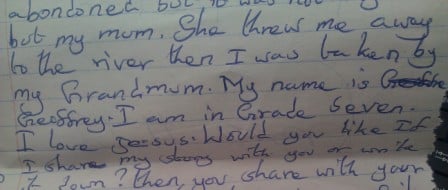 abondoned but it was not
but my mum. She threw me away
to the river then I was taken by
my Grandmum. My name is
Geoffrey. I am in Grade Seven.
I love Jeesys. Would you like If
I share my story with you or write
it down? Then, you share with your